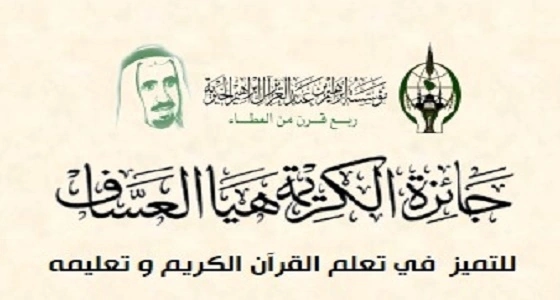 مؤسسة إبراهيم بن عبدالعزيز آل إبراهيم الخيرية
ربع قرن من العطاء
جائزة الكريمة هيا العساف
للتميز في تعلم القرآن الكريم و تعليمه